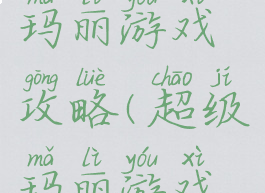 mǎ lì yóu xì
玛丽游戏
gōng lüè chāo jí
攻略(超级
mǎ lì yóu xì
玛丽游戏